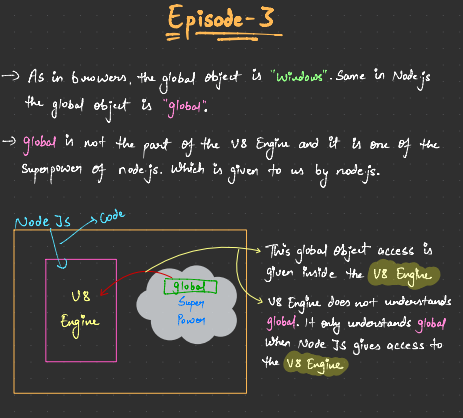 Episode-3
→ As in browsers, the global object is "Windows". Same in Node js
the global object is "global".
→ global is not the part of the V8 Engine and it is one of the
Superpower of node.js. Which is given to us by node.js.
Node JS
Code
V8
Engine
global
Super
Power
→ This global object access is
given inside the V8 Engine
→ V8 Engine does not understands
global. It only understands global
when Node JS gives access to
the V8 Engine